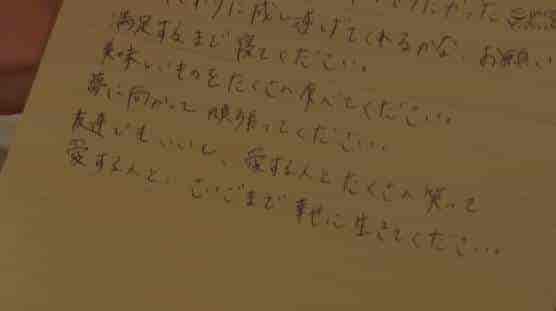 わりに成し遂げてくれるかな。お願い
満足するまで寝てください。
美味しいものをたくさん食べてください。
夢に向かって頑張ってください。
友達でもいいし、愛する人とたくさん笑って
愛する人と、さいごまで幸せに生きてください。